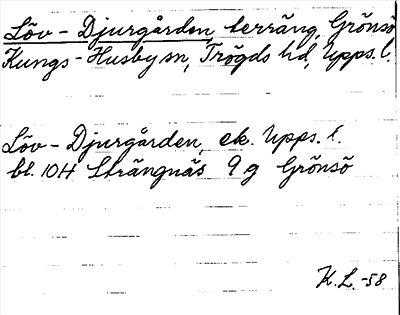 Löv-Djurgården, terräng, Grönsö
Kungs-Husby sn, Trögds hd, Upps. l.
Löv-Djurgården, ek. Upps. l.
bl. 10H Strängnäs 9g Grönsö
K.L.-58